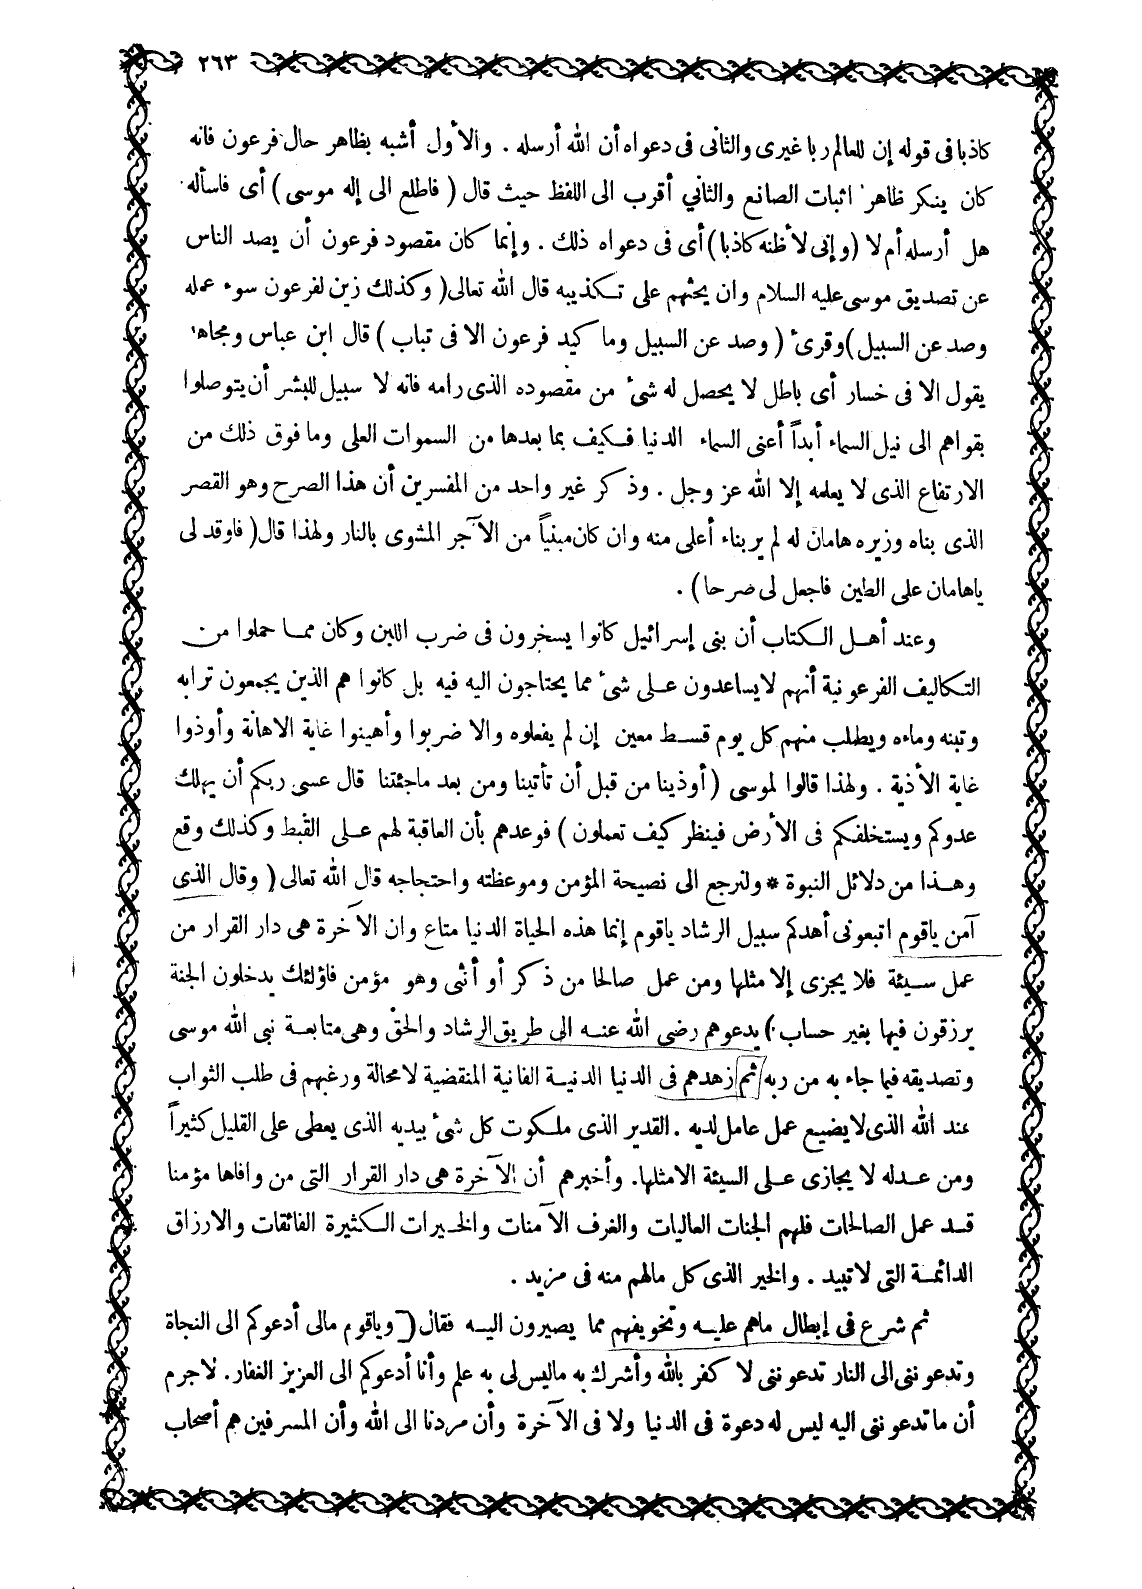 ٢٦٣
كاذبا فى قوله إن للعالم ربا غيرى والثانى فى دعواه أن الله أرسله . والأول أشبه بظاهر حال فرعون فانه
كان ينكر ظاهر اثبات الصانع والثاني أقرب الى اللفظ حيث قال ( فاطلع الى إله موسى ) أى فاسأله
هل أرسله أم لا (وإنى لأظنه كاذبا) أى فى دعواه ذلك . وإنما كان مقصود فرعون أن يصد الناس
عن تصديق موسى عليه السلام وان يحثهم على تكذيبه قال الله تعالى ( وكذلك زين لفرعون سوء عمله
وصد عن السبيل ) وقرئ ( وصد عن السبيل وما كيد فرعون الا فى تباب ) قال ابن عباس ومجاهد
يقول الا فى خسار أى باطل لا يحصل له شئ من مقصوده الذى رامه فانه لا سبيل للبشر أن يتوصلوا
بقواهم الى نيل السماء أبداً أعنى السماء الدنيا فكيف بما بعدها من السموات العلى وما فوق ذلك من
الارتفاع الذى لا يعلمه إلا الله عز وجل . وذكر غير واحد من المفسرين أن هذا الصرح وهو القصر
الذى بناه وزيره هامان له لم ير بناء أعلى منه وان كان مبنياً من الآجر المشوى بالنار ولهذا قال ( فاوقد لى
ياهامان على الطين فاجعل لى صرحا ) .
وعند أهل الكتاب أن بنى إسرائيل كانوا يسخرون فى ضرب اللبن وكان مما حملوا من
التكاليف الفرعونية أنهم لا يساعدون على شئ مما يحتاجون اليه فيه بل كانوا هم الذين يجمعون ترابه
وتبنه وماءه ويطلب منهم كل يوم قسط معين إن لم يفعلوه والا ضربوا وأهينوا غاية الاهانة وأوذوا
غاية الأذية . ولهذا قالوا لموسى ( أوذينا من قبل أن تأتينا ومن بعد ماجئتنا قال عسى ربكم أن يهلك
عدوكم ويستخلفكم فى الأرض فينظر كيف تعملون ) فوعدهم بأن العاقبة لهم على القبط وكذلك وقع
وهذا من دلائل النبوة * ولنرجع الى نصيحة المؤمن وموعظته واحتجاجه قال الله تعالى ( وقال الذى
آمن ياقوم اتبعونى أهدكم سبيل الرشاد ياقوم إنما هذه الحياة الدنيا متاع وان الآخرة هى دار القرار من
عمل سيئة فلا يجزى إلا مثلها ومن عمل صالحا من ذكر أو أنثى وهو مؤمن فاؤلئك يدخلون الجنة
يرزقون فيها بغير حساب ) يدعوهم رضى الله عنه الى طريق الرشاد والحق وهى متابعة نبى الله موسى
وتصديقه فيما جاء به من ربه ثم زهدهم فى الدنيا الدنية الفانية المنقضية لامحالة ورغبهم فى طلب الثواب
عند الله الذى لا يضيع عمل عامل لديه . القدير الذى ملكوت كل شئ بيديه الذى يعطى على القليل كثيراً
ومن عدله لا يجازى على السيئة الا مثلها. وأخبرهم أن الآخرة هى دار القرار التى من وافاها مؤمنا
قد عمل الصالحات فلهم الجنات العاليات والغرف الآمنات والخيرات الكثيرة الفائقات والارزاق
الدائمة التى لا تبيد . والخير الذى كل مالهم منه فى مزيد .
ثم شرع فى إبطال ماهم عليه وتخويفهم مما يصيرون اليه فقال ( وياقوم مالى أدعوكم الى النجاة
وتدعوننى الى النار تدعوننى لا كفر بالله وأشرك به ماليس لى به علم وأنا أدعوكم الى العزيز الغفار. لاجرم
أن ما تدعوننى اليه ليس له دعوة فى الدنيا ولا فى الآخرة وأن مردنا الى الله وأن المسرفين هم أصحاب